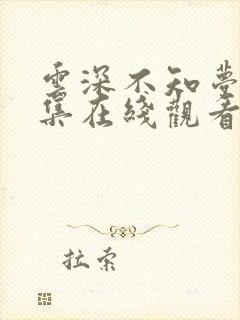 雲深不知夢
集在綫觀看
拉索